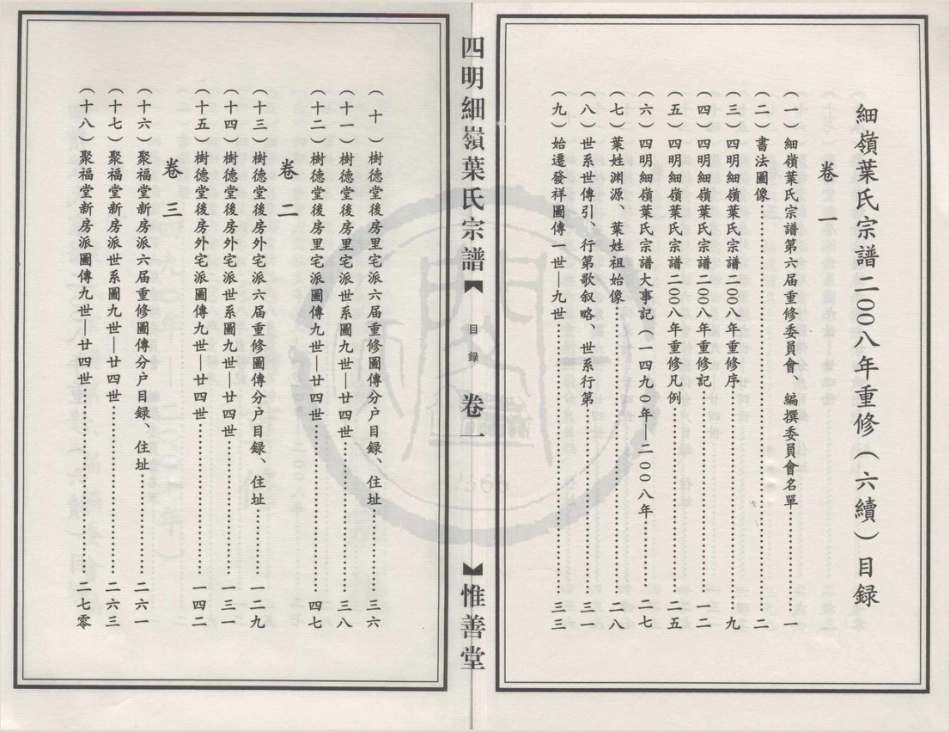 細嶺葉氏宗譜二〇〇八年重修（六續）目録
卷一
（一）細嶺葉氏宗譜第六届重修委員會、編撰委員會名單……一
（二）書法圖像……二
（三）四明細嶺葉氏宗譜二〇〇八年重修序……九
（四）四明細嶺葉氏宗譜二〇〇八年重修記……一二
（五）四明細嶺葉氏宗譜二〇〇八年重修凡例……二五
（六）四明細嶺葉氏宗譜大事記（一四九〇年—二〇〇八年……二七
（七）葉姓渊源、葉姓祖始像……二八
（八）世系世傳引、行第歌叙略、世系行第……三一
（九）始遷發祥圖傳一世—九世……三三
四明細嶺葉氏宗譜【目録 卷一】惟善堂
（十）樹德堂後房里宅派六届重修圖傳分户目録、住址……三六
（十一）樹德堂後房里宅派世系圖九世—廿四世……三八
（十二）樹德堂後房里宅派圖傳九世—廿四世……四七
卷二
（十三）樹德堂後房外宅派六届重修圖傳分户目録、住址……一二九
（十四）樹德堂後房外宅派世系圖九世—廿四世……一三一
（十五）樹德堂後房外宅派圖傳九世—廿四世……一四二
卷三
（十六）聚福堂新房派六届重修圖傳分户目録、住址……二六一
（十七）聚福堂新房派世系圖九世—廿四世……二六三
（十八）聚福堂新房派圖傳九世—廿四世……二七零